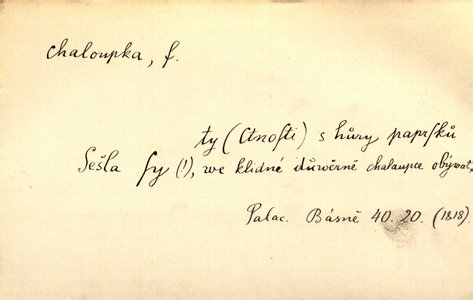 chaloupka, f.
ty (Ctnoſti) s hůry paprſků
Seſla ſy (!), we klidné důwěrně chalaupce obýwat,
Palac. Básně 40. 20. (1818).